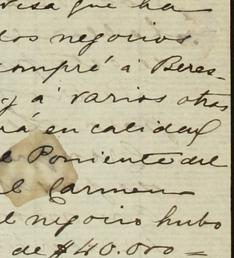 visa que ha
los negocios
compré á Beres-
y á varios otros
rá en calidad
el Poniente del
el Carmen
el negocio hubo
de $40.000=